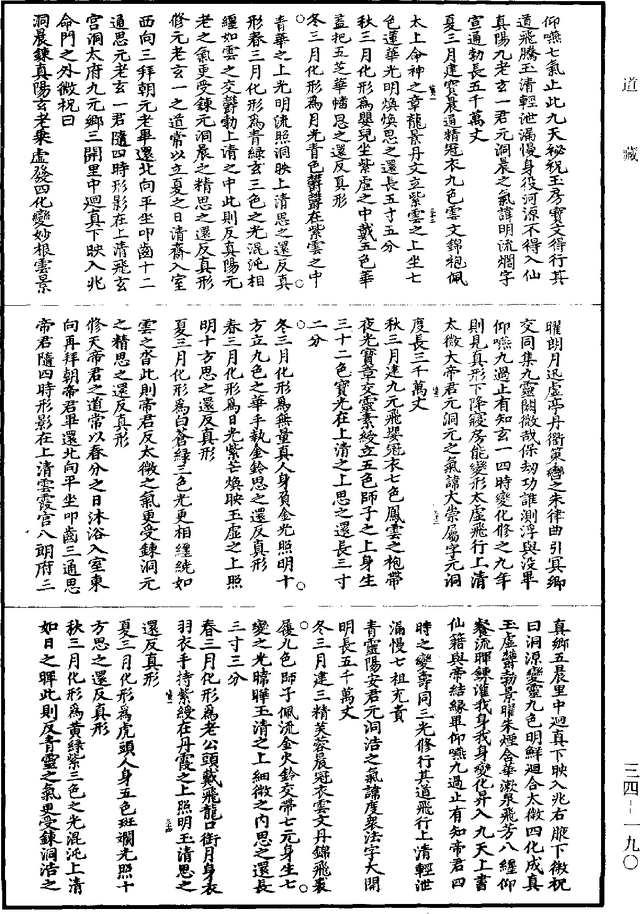 道藏
仰嚥七氣止此九天祕祝玉房寶文得行其
道飛騰玉清輕泄漏慢身役河源不得入仙
真陽九老玄一君元洞晨之氣諱明流㶒字
宣通勃長五千萬丈
夏三月建寶晨道精冠衣九色雲文錦袍佩
太上命神之章龍景丹文立紫雲之上坐七
色蓮華光明煥煥思之還長五寸五分
秋三月化形為嬰兒坐紫虛之中戴五色華
蓋把五芝華幡思之還反真形
冬三月化形為月光青色鬱鬱在紫雲之中
青華之上光明流照洞映上清思之還反真
形春三月化形為青綠玄三色之光混沌相
纏如雲之交鬱勃上清之中此則反真陽元
老之氣更受鍊元洞晨之精思之還反真形
修元老玄一之道常以立夏之日清齋入室
西向三拜朝元老畢還北向平坐叩齒十二
通思元老玄一君隨四時形影在上清飛玄
宮洞太府九元鄉三開里中迴真下映入兆
命門之外微祝曰
洞晨鍊真陽玄老乘虛發四化變妙根雲景
曜朗月迅虛亭丹衢策轡之朱律曲引冥鄉
交同集九靈闕微哉保劫功誰測浮與沒畢
仰嚥九過止有知玄一四時變化修之九年
則見真形下降寢房能變形太虛飛行上清
太微大帝君元洞元之氣諱大崇屬字元洞
度長三千萬丈
秋三月建九元飛嬰冠衣七色鳳雲之袍帶
夜光寶章交靈素綬立五色師子之上身生
三十二色寶光在上清之上思之還長三寸
二分
冬三月化形為無量真人身負金光照明十
方立九色之華手執金鈴思之還反真形
春三月化形為日光紫芒煥映玉虛之上照
明十方思之還反真形
夏三月化形為白蒼綠三色光更相纏繞如
雲之沓此則帝君反太微之氣更受鍊洞元
之精思之還反真形
修天帝君之道常以春分之日沐浴入室東
向再拜朝帝君畢還北向平坐叩齒三通思
帝君隨四時形影在上清雲霞宮八朗府三
真鄉五晨里中迴真下映入兆右腋下微祝
曰洞源變靈九色明鮮迴合太微四化成真
玉虛鬱勃景曜朱煙合華漱泉飛芳八纏仰
餐流暉鍊灌我身我身變化昇入九天上書
仙籍與帝結緣畢仰嚥九過止有知帝君四
時之變壽同三光修行其道飛行上清輕泄
漏慢七祖充責
青靈陽安君元洞洁之氣諱度衆法字大開
明長五千萬丈
冬三月建三精芙蓉晨冠衣雲文丹錦飛裘
履九色師子佩流金火鈴交帶七元身生七
變之光曈曄玉清之上細微之內思之還長
三寸三分
春三月化形為老公頭戴飛龍口銜月身衣
羽衣手持紫綬在丹霞之上照明玉清思之
還反真形
夏三月化形為虎頭人身五色斑斕光照十
方思之還反真形
秋三月化形為黃綠紫三色之光混沌上清
如日之暉此則反青靈之氣更受鍊洞洁之
三四-一九〇